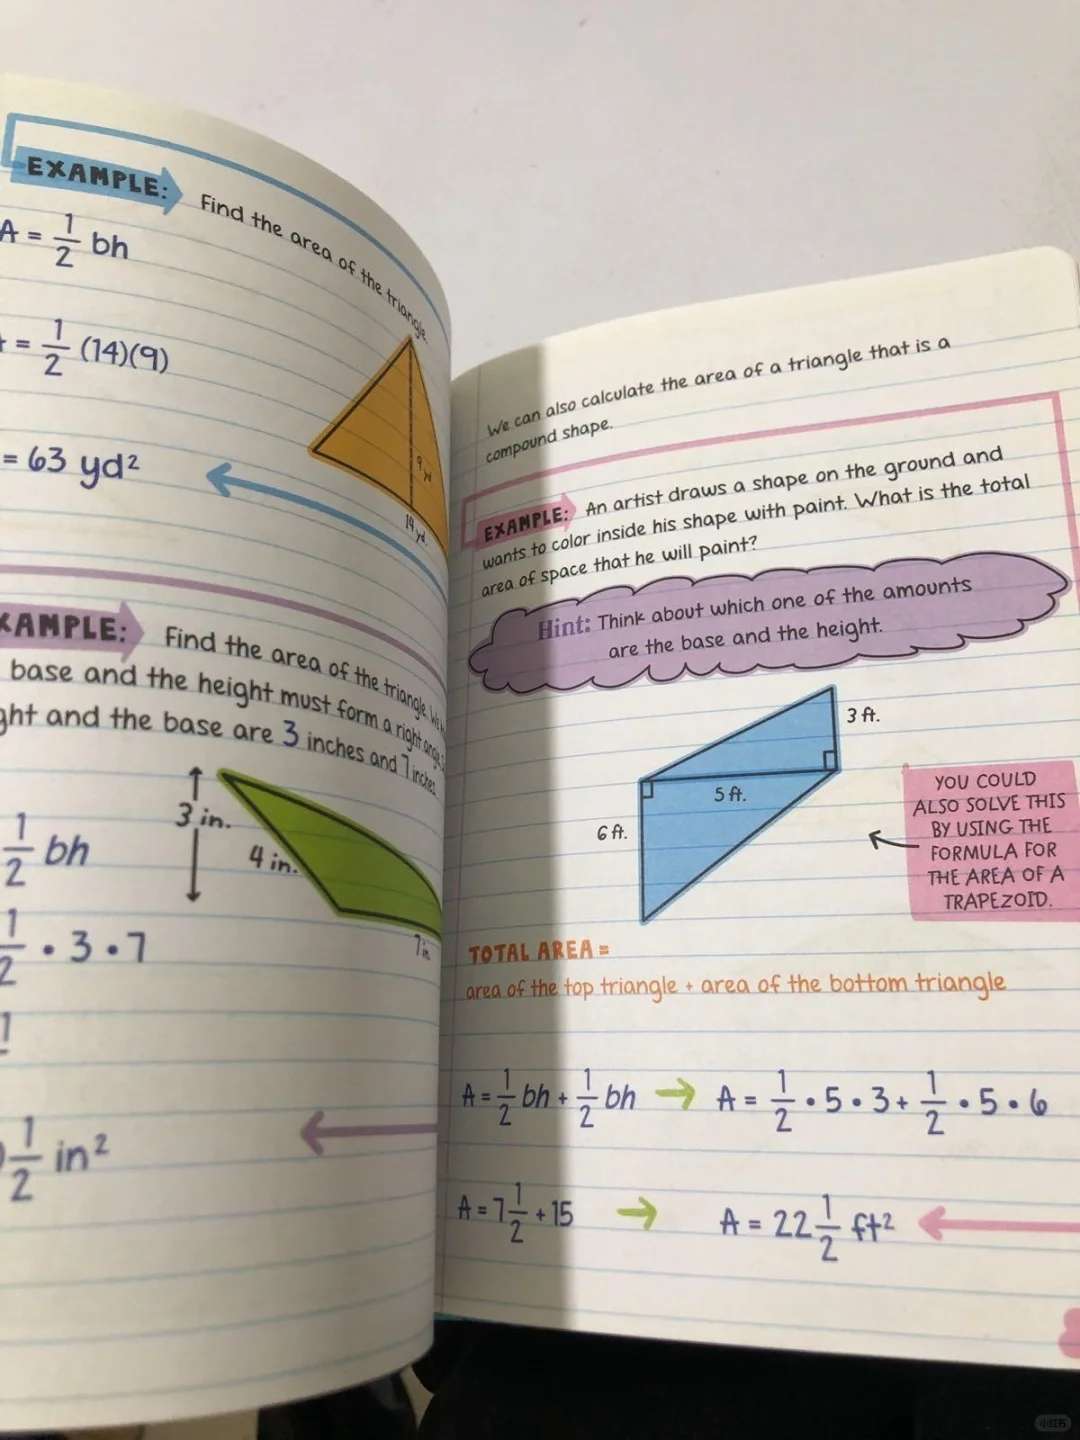 EXAMPLE: Find the area of the triangle.
A = 1/2 bh
= 1/2 (14)(9)
= 63 yd²
9 yd
14 yd.
XAMPLE: Find the area of the triangle. We
base and the height must form a right angle.
ght and the base are 3 inches and 7 inches.
3 in.
4 in.
7 in.
1/2 bh
1/2 • 3 • 7
1/2 in²
We can also calculate the area of a triangle that is a
compound shape.
EXAMPLE: An artist draws a shape on the ground and
wants to color inside his shape with paint. What is the total
area of space that he will paint?
Hint: Think about which one of the amounts
are the base and the height.
3 ft.
5 ft.
6 ft.
YOU COULD
ALSO SOLVE THIS
BY USING THE
FORMULA FOR
THE AREA OF A
TRAPEZOID.
TOTAL AREA =
area of the top triangle + area of the bottom triangle
A = 1/2 bh + 1/2 bh → A = 1/2 • 5 • 3 + 1/2 • 5 • 6
A = 7 1/2 + 15 → A = 22 1/2 ft²